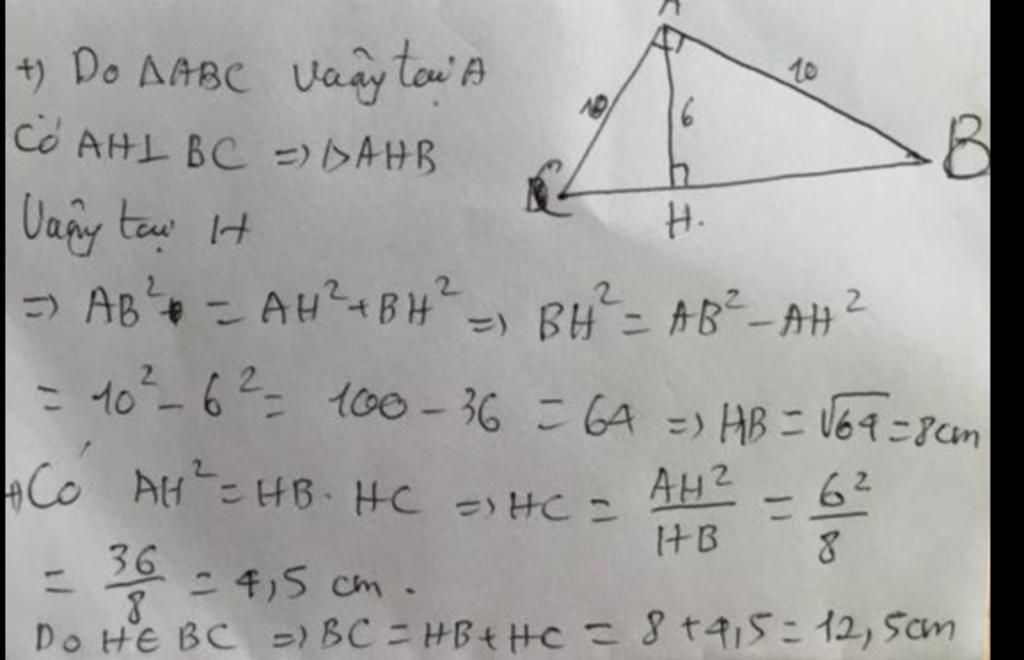 A
+) Do ΔABC vuông tại A
10
10
6
Có AH⊥ BC => ΔAHB
B
C
H.
Vuông tại H
=> AB² = AH² + BH² => BH² = AB² - AH²
= 10² - 6² = 100 - 36 = 64 => HB = √64 = 8cm
+) Có AH² = HB . HC => HC = AH²/HB = 6²/8
= 36/8 = 4,5 cm .
Do H∈ BC => BC = HB + HC = 8 + 4,5 = 12,5cm